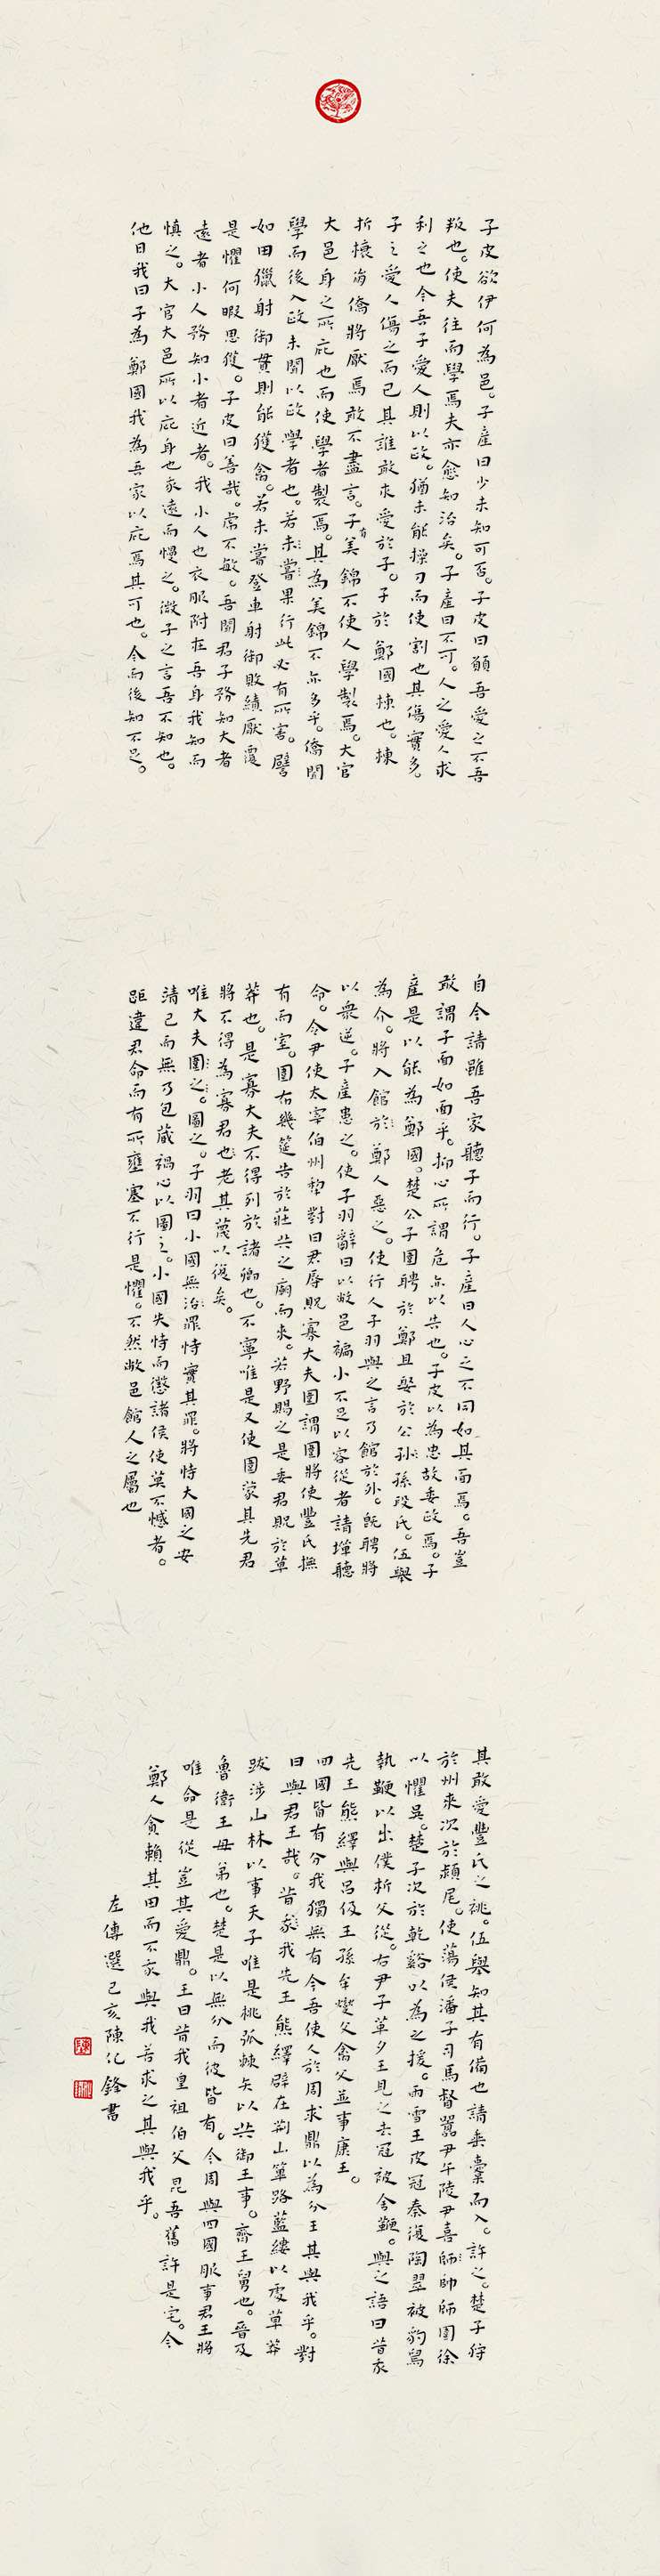 子皮欲伊何為邑。子產曰少未知可否。子皮曰願吾愛之不吾
叛也。使夫往而學焉夫亦愈知治矣。子產曰不可。人之愛人求
利之也今吾子愛人則以政。猶未能操刀而使割也其傷實多。
子之愛人傷之而已其誰敢求愛於子。子於鄭國棟也。棟
折榱 僑將厭焉敢不盡言。子有美錦不使人學製焉。大官
大邑身之所庇也而使學者製焉。其為美錦不亦多乎。僑聞
學而後入政未聞以政學者也。若未嘗果行此必有所害。譬
如田獵射御貫則能獲禽。若未嘗登車射御敗績厭覆
是懼何暇思獲。子皮曰善哉。虎不敏。吾聞君子務知大者
遠者小人務知小者近者。我小人也衣服附在吾身我知而
慎之。大官大邑所以庇身也我遠而慢之。微子之言吾不知也。
他日我曰子為鄭國我為吾家以庇焉其可也。今而後知不足。
自今請雖吾家聽子而行。子產曰人心之不同如其面焉。吾豈
敢謂子面如面乎。抑心所謂危亦以告也。子皮以為忠故委政焉。子
產是以能為鄭國。楚公子圍聘於鄭且娶於公孫孫段氏。伍舉
為介。將入館於鄭人惡之。使行人子羽與之言乃館於外。既聘將
以衆逆。子產患之。使子羽辭曰以敝邑褊小不足以容從者請墠聽
命。令尹使太宰伯州犂對曰君辱貺寡大夫圍謂圍將使豐氏撫
有而室。圍布幾筵告於莊共之廟而來。若野賜之是委君貺於草
莽也。是寡大夫不得列於諸卿也。不寧唯是又使圍蒙其先君
將不得為寡君也老其蔑以復矣。
唯大夫圖之。圖之。子羽曰小國無治罪恃實其罪。將恃大國之安
靖己而無乃包藏禍心以圖之。小國失恃而懲諸侯使莫不憾者。
距違君命而有所壅塞不行是懼。不然敝邑館人之屬也
其敢愛豐氏之祧。伍舉知其有備也請垂櫜而入。許之。楚子狩
於州來次於潁尾。使蕩侯潘子司馬督囂尹午陵尹喜師帥師圍徐
以懼吳。楚子次於乾谿以為之援。雨雪王皮冠秦復陶翠被豹舄
執鞭以出僕析父從。右尹子革夕王見之去冠被舍鞭。與之語曰昔我
先王熊繹與呂伋王孫牟燮父禽父並事康王。
四國皆有分我獨無有今吾使人於周求鼎以為分王其與我乎。對
曰與君王哉。昔我先王熊繹辟在荊山篳路藍縷以處草莽
跋涉山林以事天子唯是桃弧棘矢以共御王事。齊王舅也。晉及
魯衛王母弟也。楚是以無分而彼皆有。今周與四國服事君王將
唯命是從豈其愛鼎。王曰昔我皇祖伯父昆吾舊許是宅。今
鄭人貪賴其田而不我與我若求之其與我乎。
左傳選己亥陳化鋒書